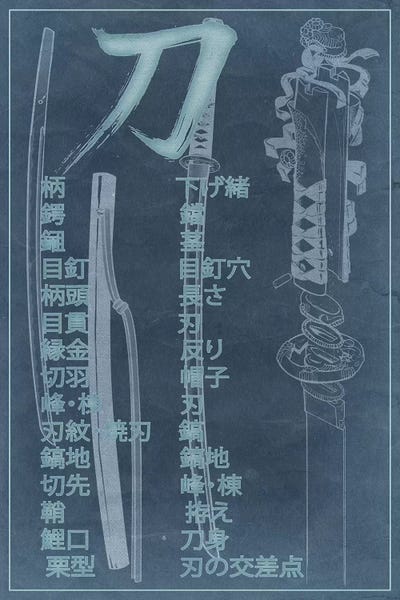 刀
柄
鍔
目釘
柄頭
目貫
縁金
切羽
峰・棟
刃紋・焼刃
鎬地
切先
鞘
鯉口
栗型
下げ緒
茎
目釘穴
長さ
刃
反り
帽子
刃
鎬
鎬地
峰・棟
拵え
刀身
刃の交差点